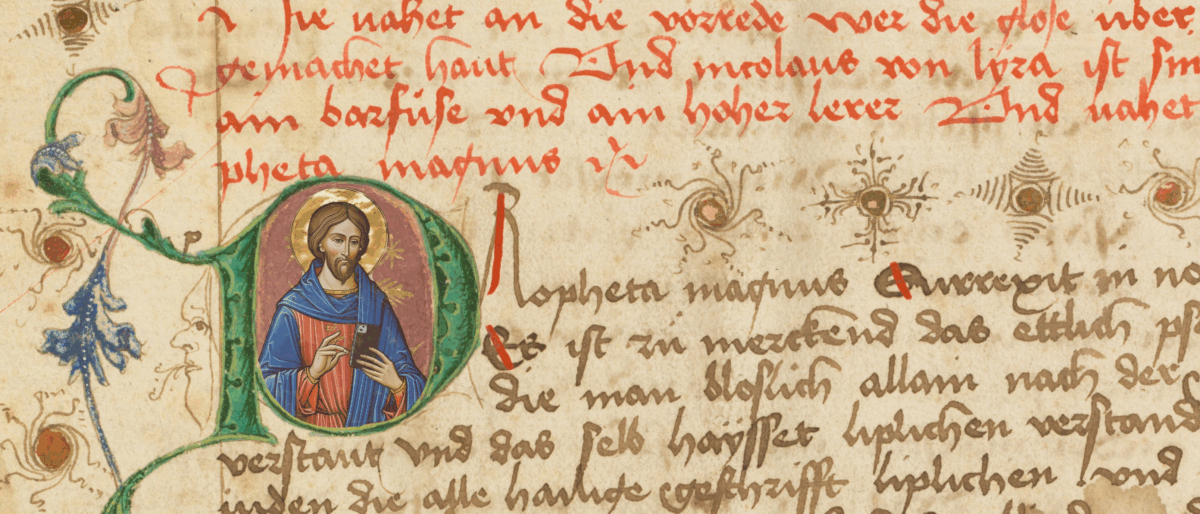 Hie vahet an die vorrede wer die glose über
gemachet haut Vnd nicolaus von lyra ist sin
ain barfüse vnd ain hoher lerer Vnd vahet
pheta magnus
Ropheta magnus Surrexit in no
Es ist zu merckend das ettlich ps
die man bloslich allain nach der
verstaut vnd das selb haÿsset liplichen verstand
inden die alle hailige geschrifft liplichen vnd